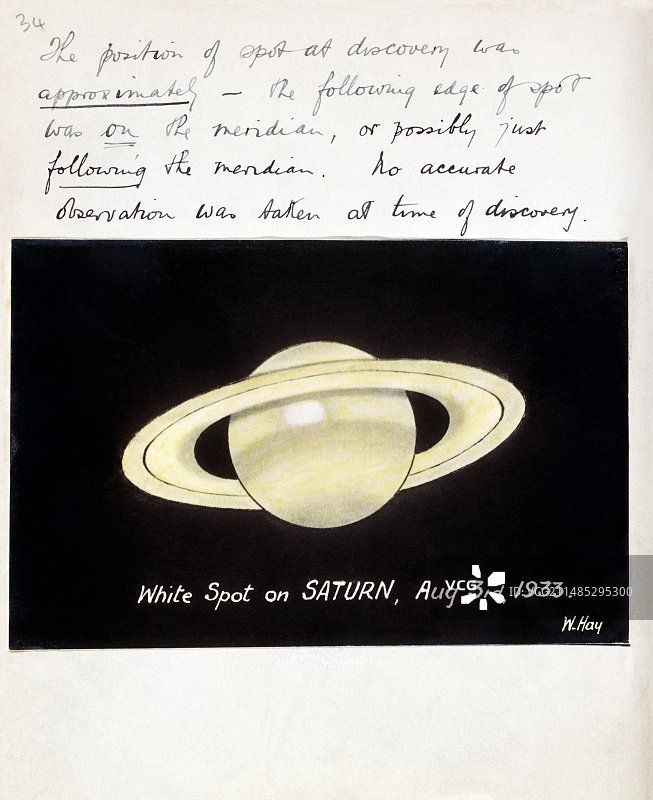 34
The position of spot at discovery was
approximately – the following edge of spot
was on the meridian, or possibly just
following the meridian. No accurate
observation was taken at time of discovery.
White Spot on SATURN, Aug 3rd 1933
VCG
ID:VCG211485295300
W. Hay